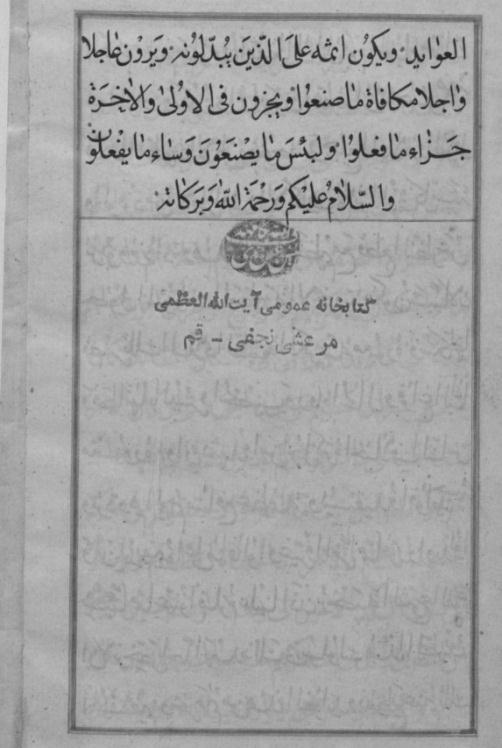 العوايد ويكون اثمه على الذين يبدلونه ويرون عاجلا
واجلا مكافاة ما صنعوا ويجزون فى الاولىٰ والاٰخرة
جزاء ما فعلوا ولبئس ما يصنعون وساء ما يفعلون
والسّلام عليكم ورحمة اللّٰه وبركاته
كتابخانه عمومى آيت الله العظمى
مرعشى نجفى - قم